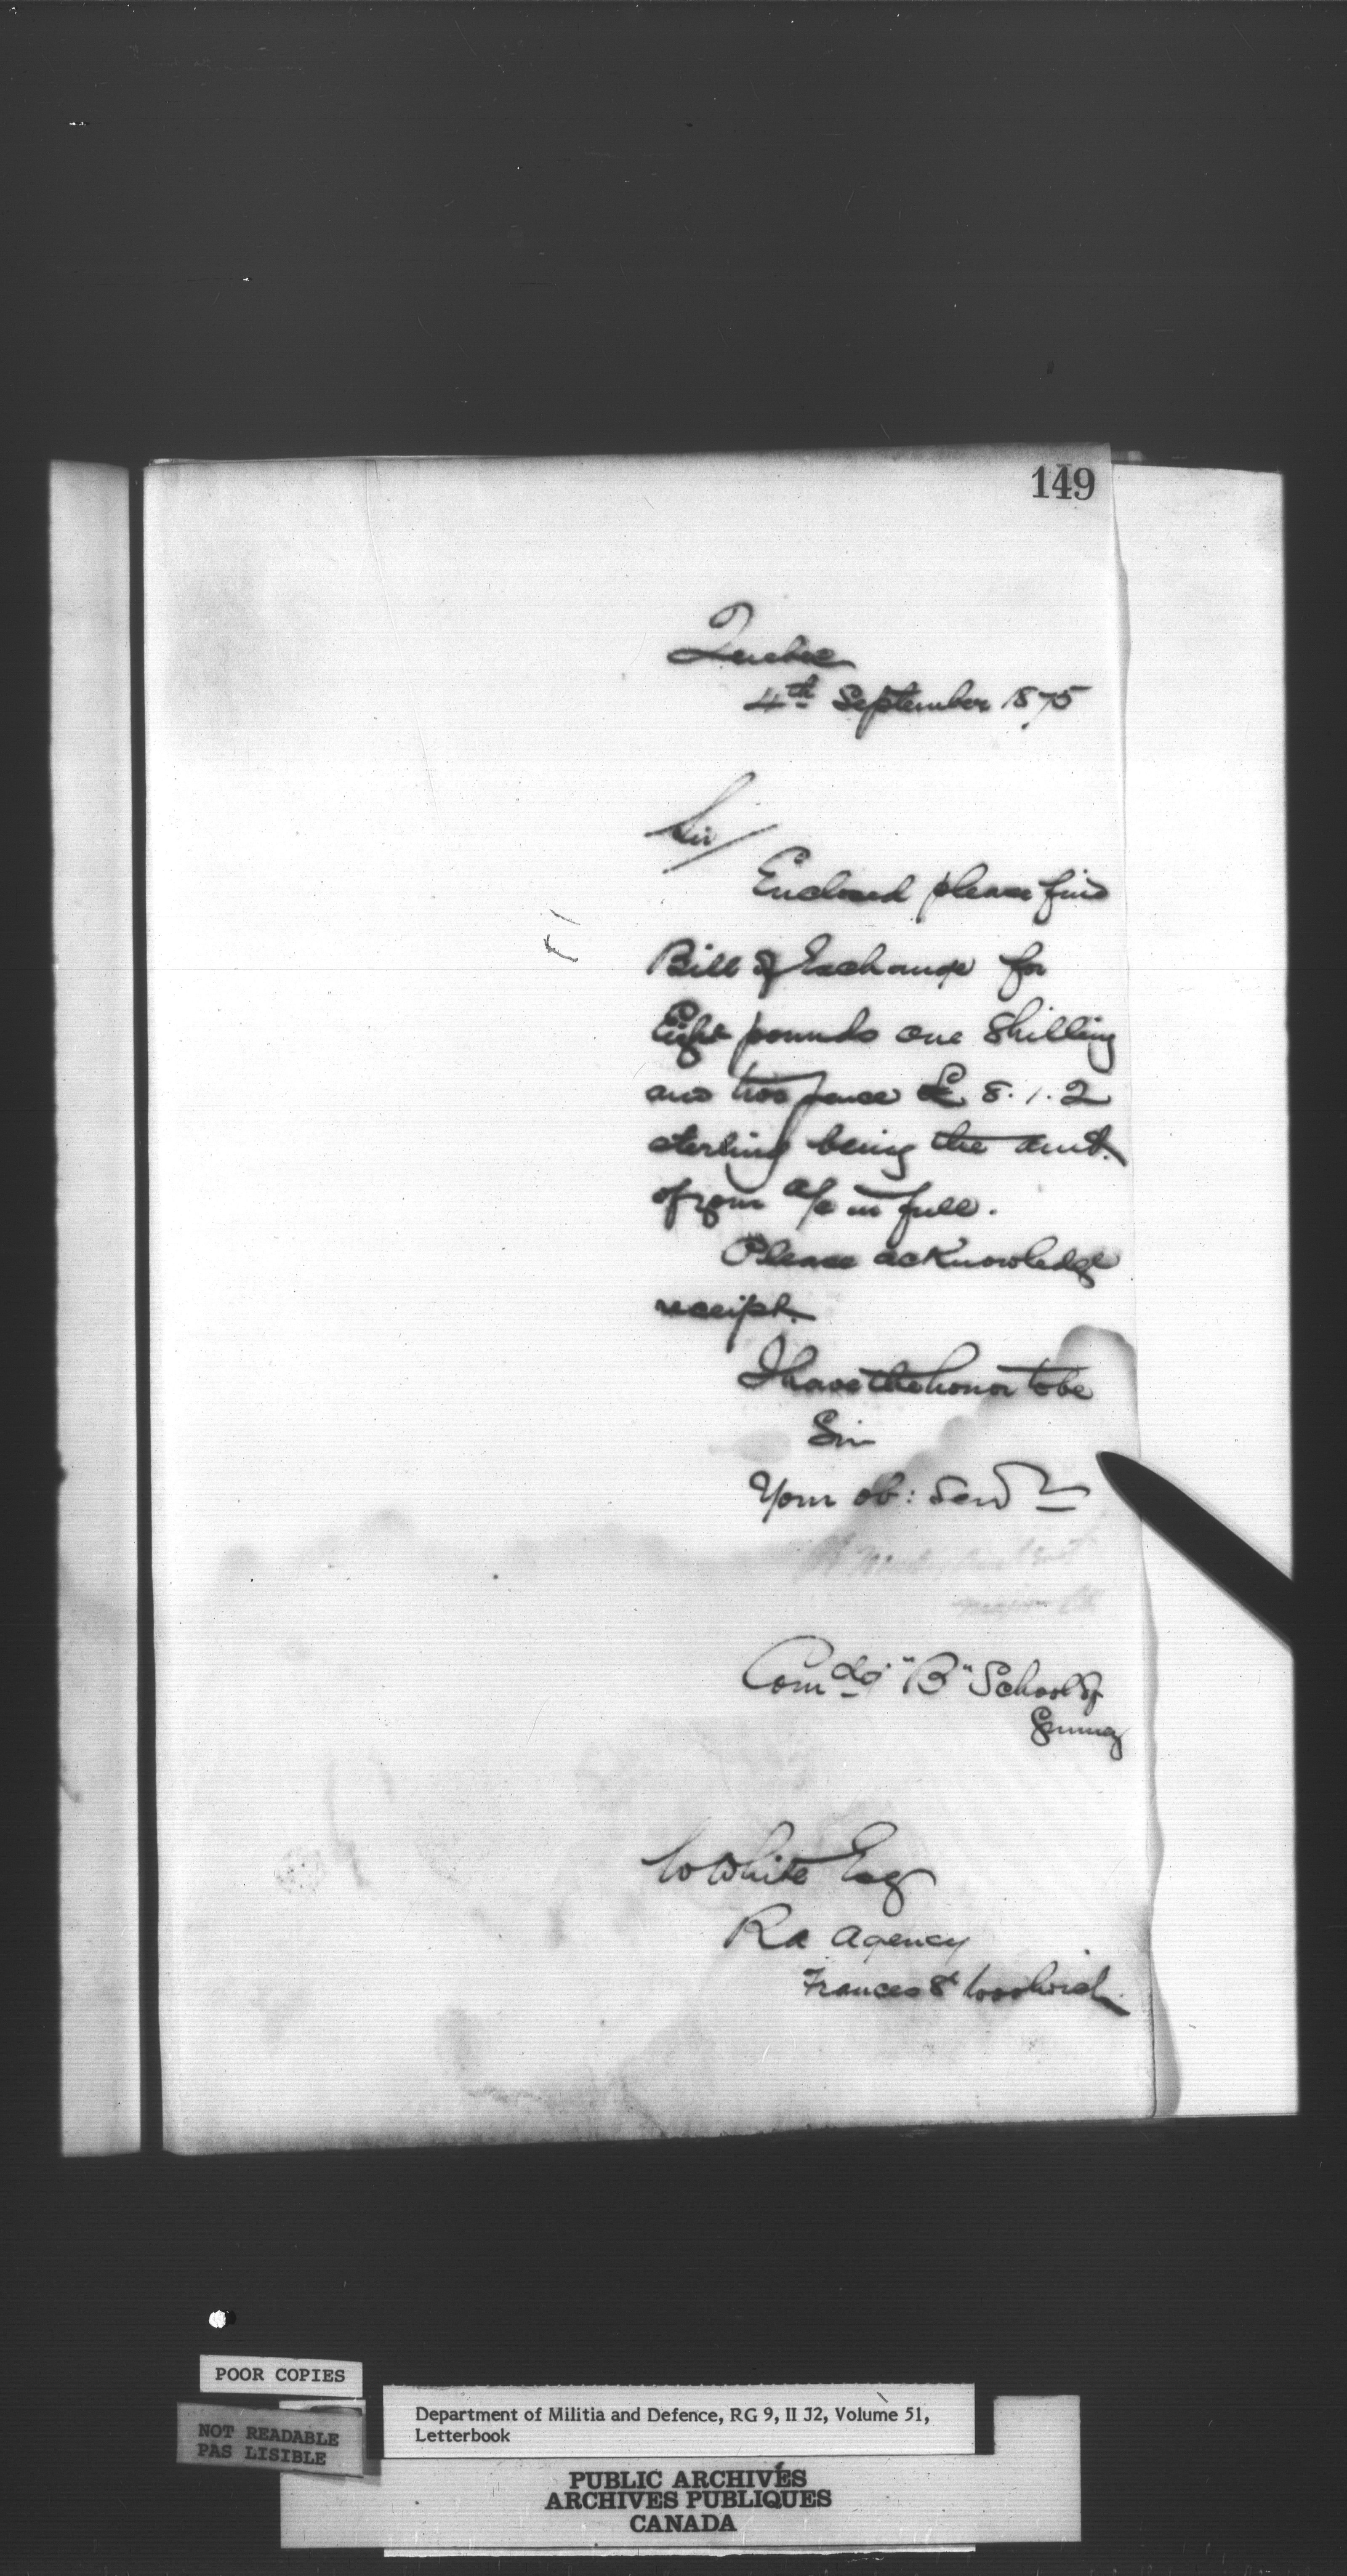 149
Quebec
4th September 1875
Sir/
Enclosed please find
Bill of Exchange for
Eight pounds one Shilling
and two pence £ 8.1.2
sterling being the amt.
of your a/c in full.
Please acknowledge
receipt.
I have the honor to be
Sir
Your ob: Serv
Comdg "B" School of
Gunnery
W White Esq
RA Agency
Frances St Woolwich
POOR COPIES
NOT READABLE
PAS LISIBLE
Department of Militia and Defence, RG 9, II J2, Volume 51,
Letterbook
PUBLIC ARCHIVES
ARCHIVES PUBLIQUES
CANADA